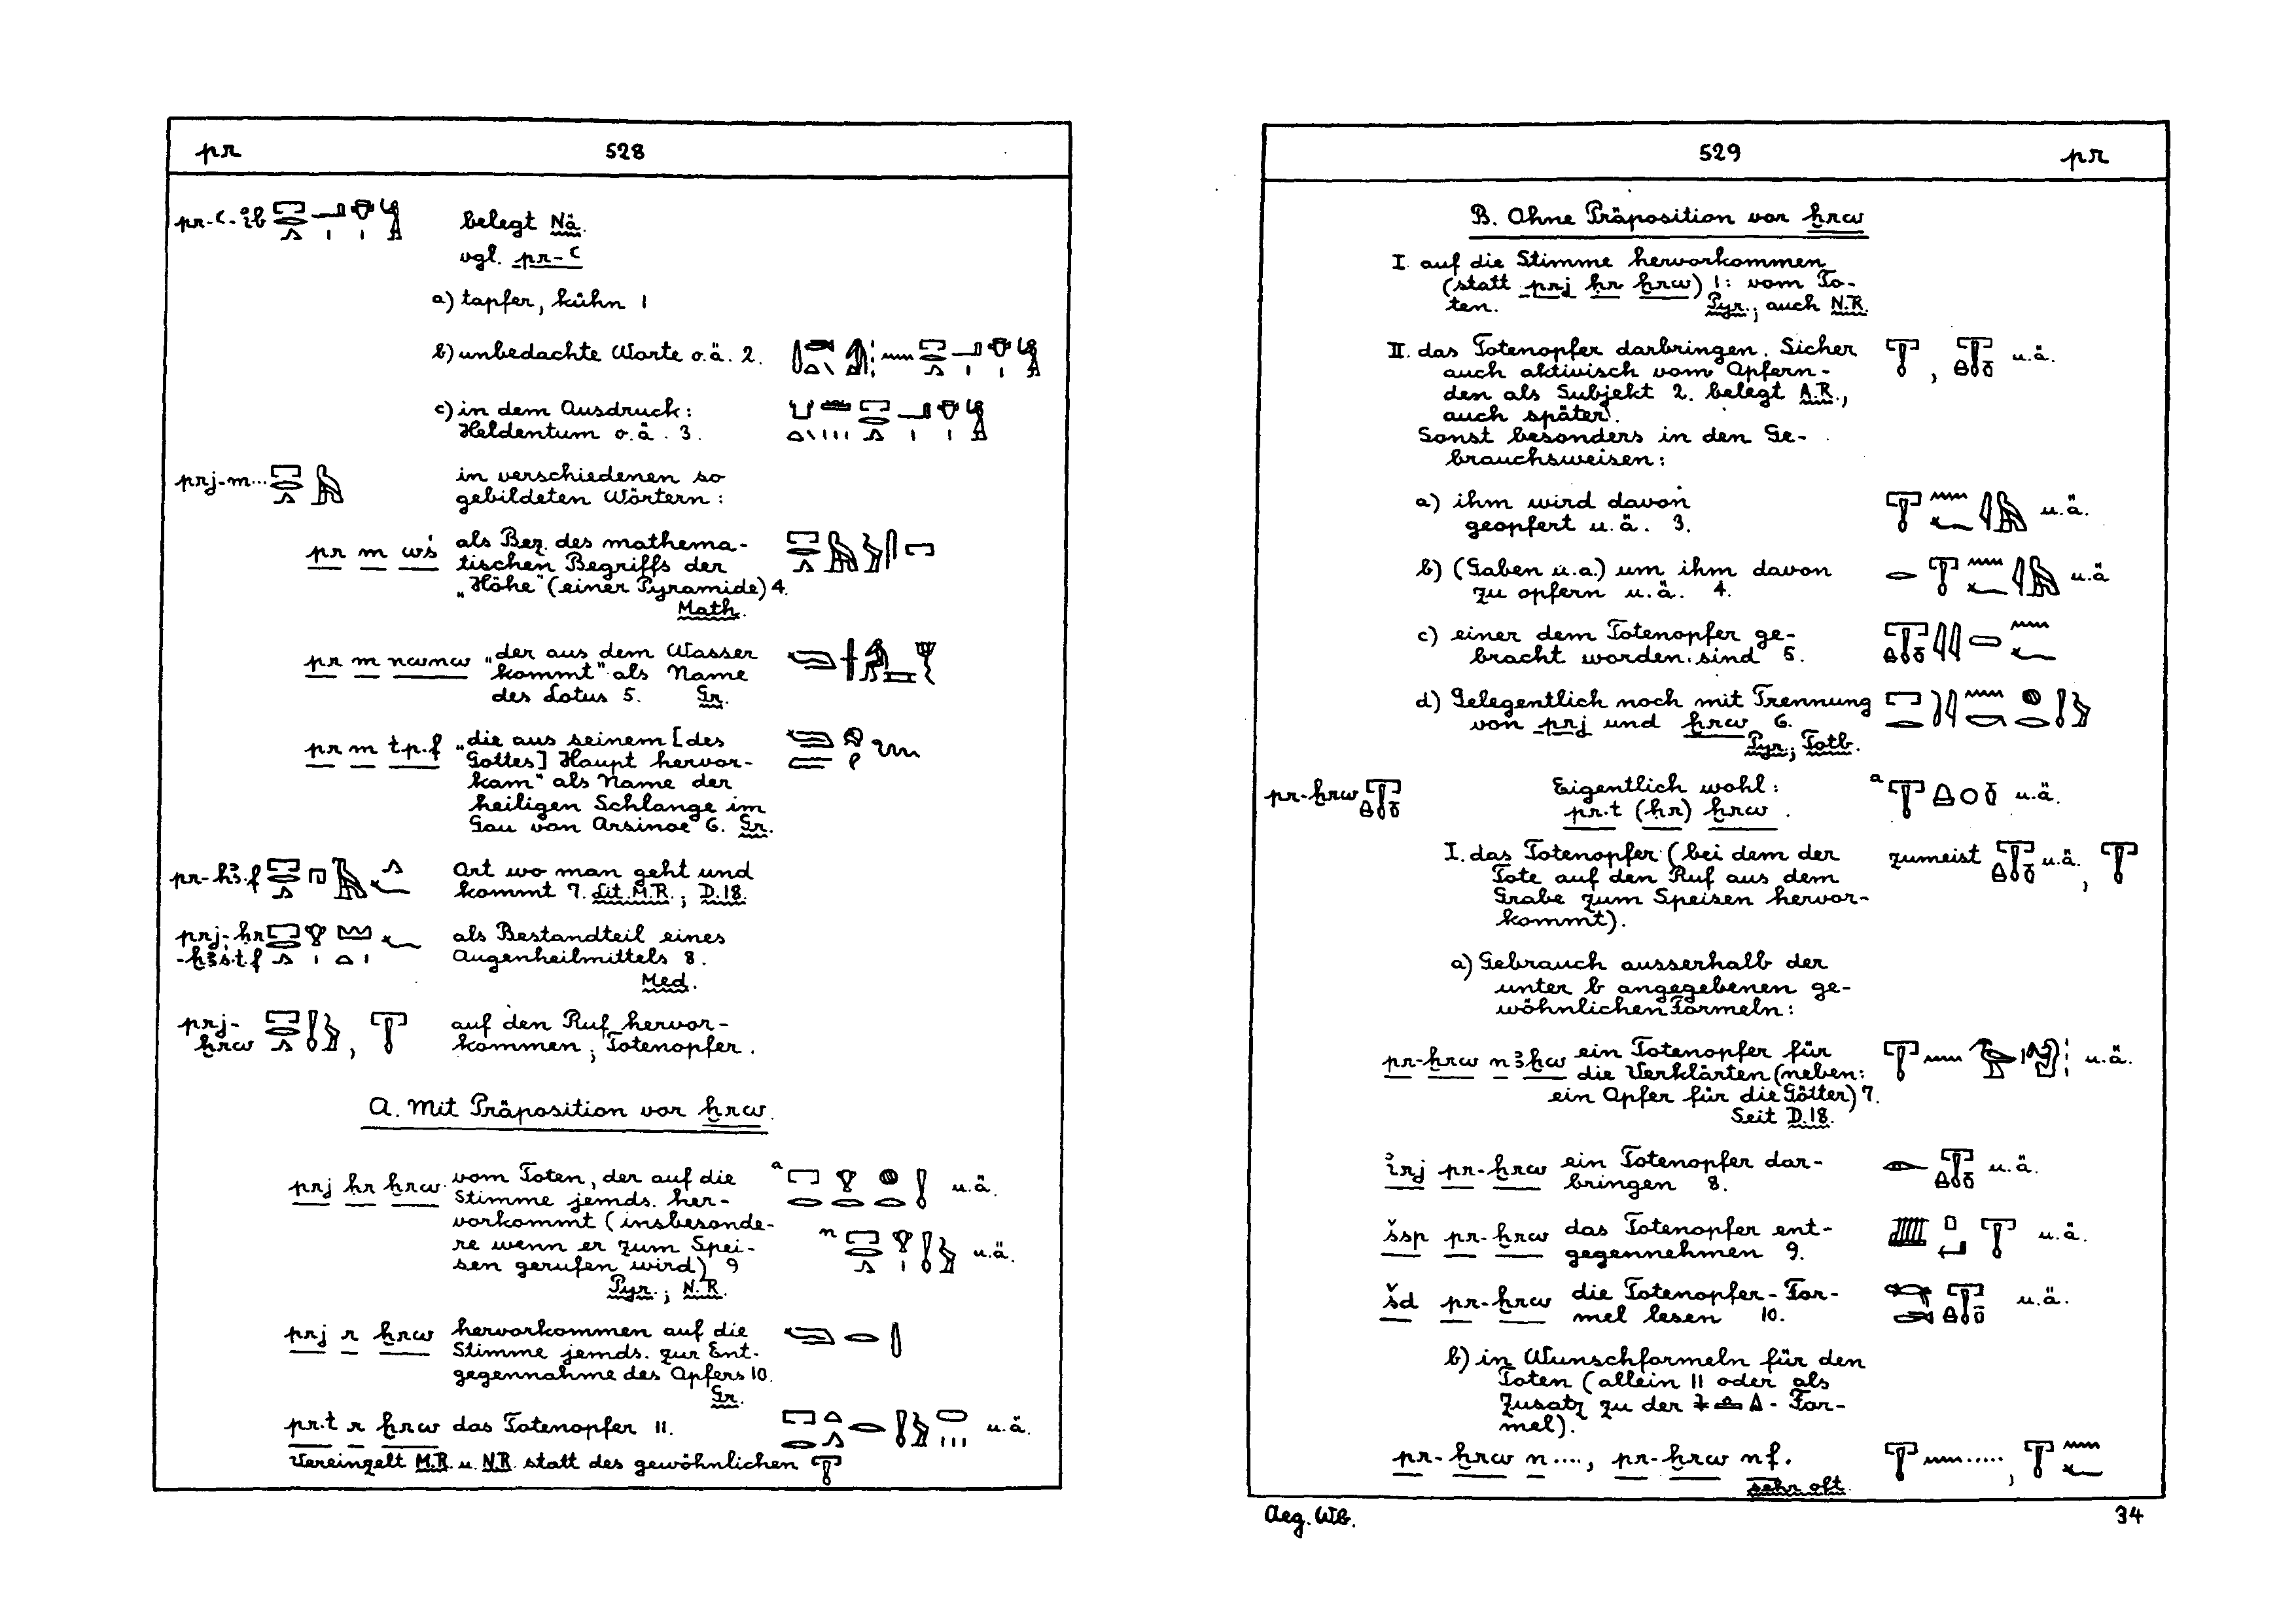 pr 528
pr-ꜥ-ib belegt Nä.
vgl. pr-ꜥ
a) tapfer, kühn 1
b) unbedachte Worte o.ä. 2.
c) in dem Ausdruck:
Heldentum o.ä. 3.
prj-m... in verschiedenen so
gebildeten Wörtern:
pr m wś als Bez. des mathema-
tischen Begriffs der
„Höhe" (einer Pyramide) 4.
Math.
pr m nwnw „der aus dem Wasser
kommt" als Name
des Lotus 5. Gr.
pr m tp.f „die aus seinem [des
Gottes] Haupt hervor-
kam" als Name der
heiligen Schlange im
Gau von Arsinoe 6. Gr.
pr-hꜣ.f Ort wo man geht und
kommt 7. Lit. M.R.; D.18.
prj-ḥr als Bestandteil eines
-ḫꜣś.t.f Augenheilmittels 8.
Med.
prj- auf den Ruf hervor-
ḫrw , kommen; Totenopfer.
A. Mit Präposition vor ḫrw.
prj ḥr ḫrw vom Toten, der auf die a u.ä.
Stimme jemds. her-
vorkommt (insbesonde-
re wenn er zum Spei- n u.ä.
sen gerufen wird) 9
Pyr.; N.R.
prj r ḫrw hervorkommen auf die
Stimme jemds. zur Ent-
gegennahme des Opfers 10.
Gr.
pr.t r ḫrw das Totenopfer 11. u.ä.
Vereinzelt M.R. u. N.R. statt des gewöhnlichen
529 pr
B. Ohne Präposition vor ḫrw
I. auf die Stimme hervorkommen
(statt prj ḥr ḫrw) 1: vom To-
ten. Pyr.; auch N.R.
II. das Totenopfer darbringen. Sicher , u.ä.
auch aktivisch vom Opfern-
den als Subjekt 2. belegt A.R.,
auch später.
Sonst besonders in den Ge-
brauchsweisen:
a) ihm wird davon u.ä.
geopfert u.ä. 3.
b) (Gaben u.a.) um ihm davon u.ä
zu opfern u.ä. 4.
c) einer dem Totenopfer ge-
bracht worden sind 5.
d) Gelegentlich noch mit Trennung
von prj und ḫrw 6.
Pyr.; Totb.
pr-ḫrw Eigentlich wohl: a u.ä.
pr.t (ḥr) ḫrw.
I. das Totenopfer (bei dem der zumeist u.ä. ,
Tote auf den Ruf aus dem
Grabe zum Speisen hervor-
kommt).
a) Gebrauch ausserhalb der
unter b angegebenen ge-
wöhnlichen Formeln:
pr-ḫrw n ꜣḫw ein Totenopfer für u.ä.
die Verklärten (neben:
ein Opfer für die Götter) 7.
Seit D.18.
irj pr-ḫrw ein Totenopfer dar- u.ä.
bringen 8.
šsp pr-ḫrw das Totenopfer ent- u.ä.
gegennehmen 9.
šd pr-ḫrw die Totenopfer-For- u.ä.
mel lesen 10.
b) in Wunschformeln für den
Toten (allein 11 oder als
Zusatz zu der 𓇓𓏏𓊵𓏙 - For-
mel).
pr-ḫrw n...., pr-ḫrw nf. ......,
sehr oft.
Aeg. Wb. 34